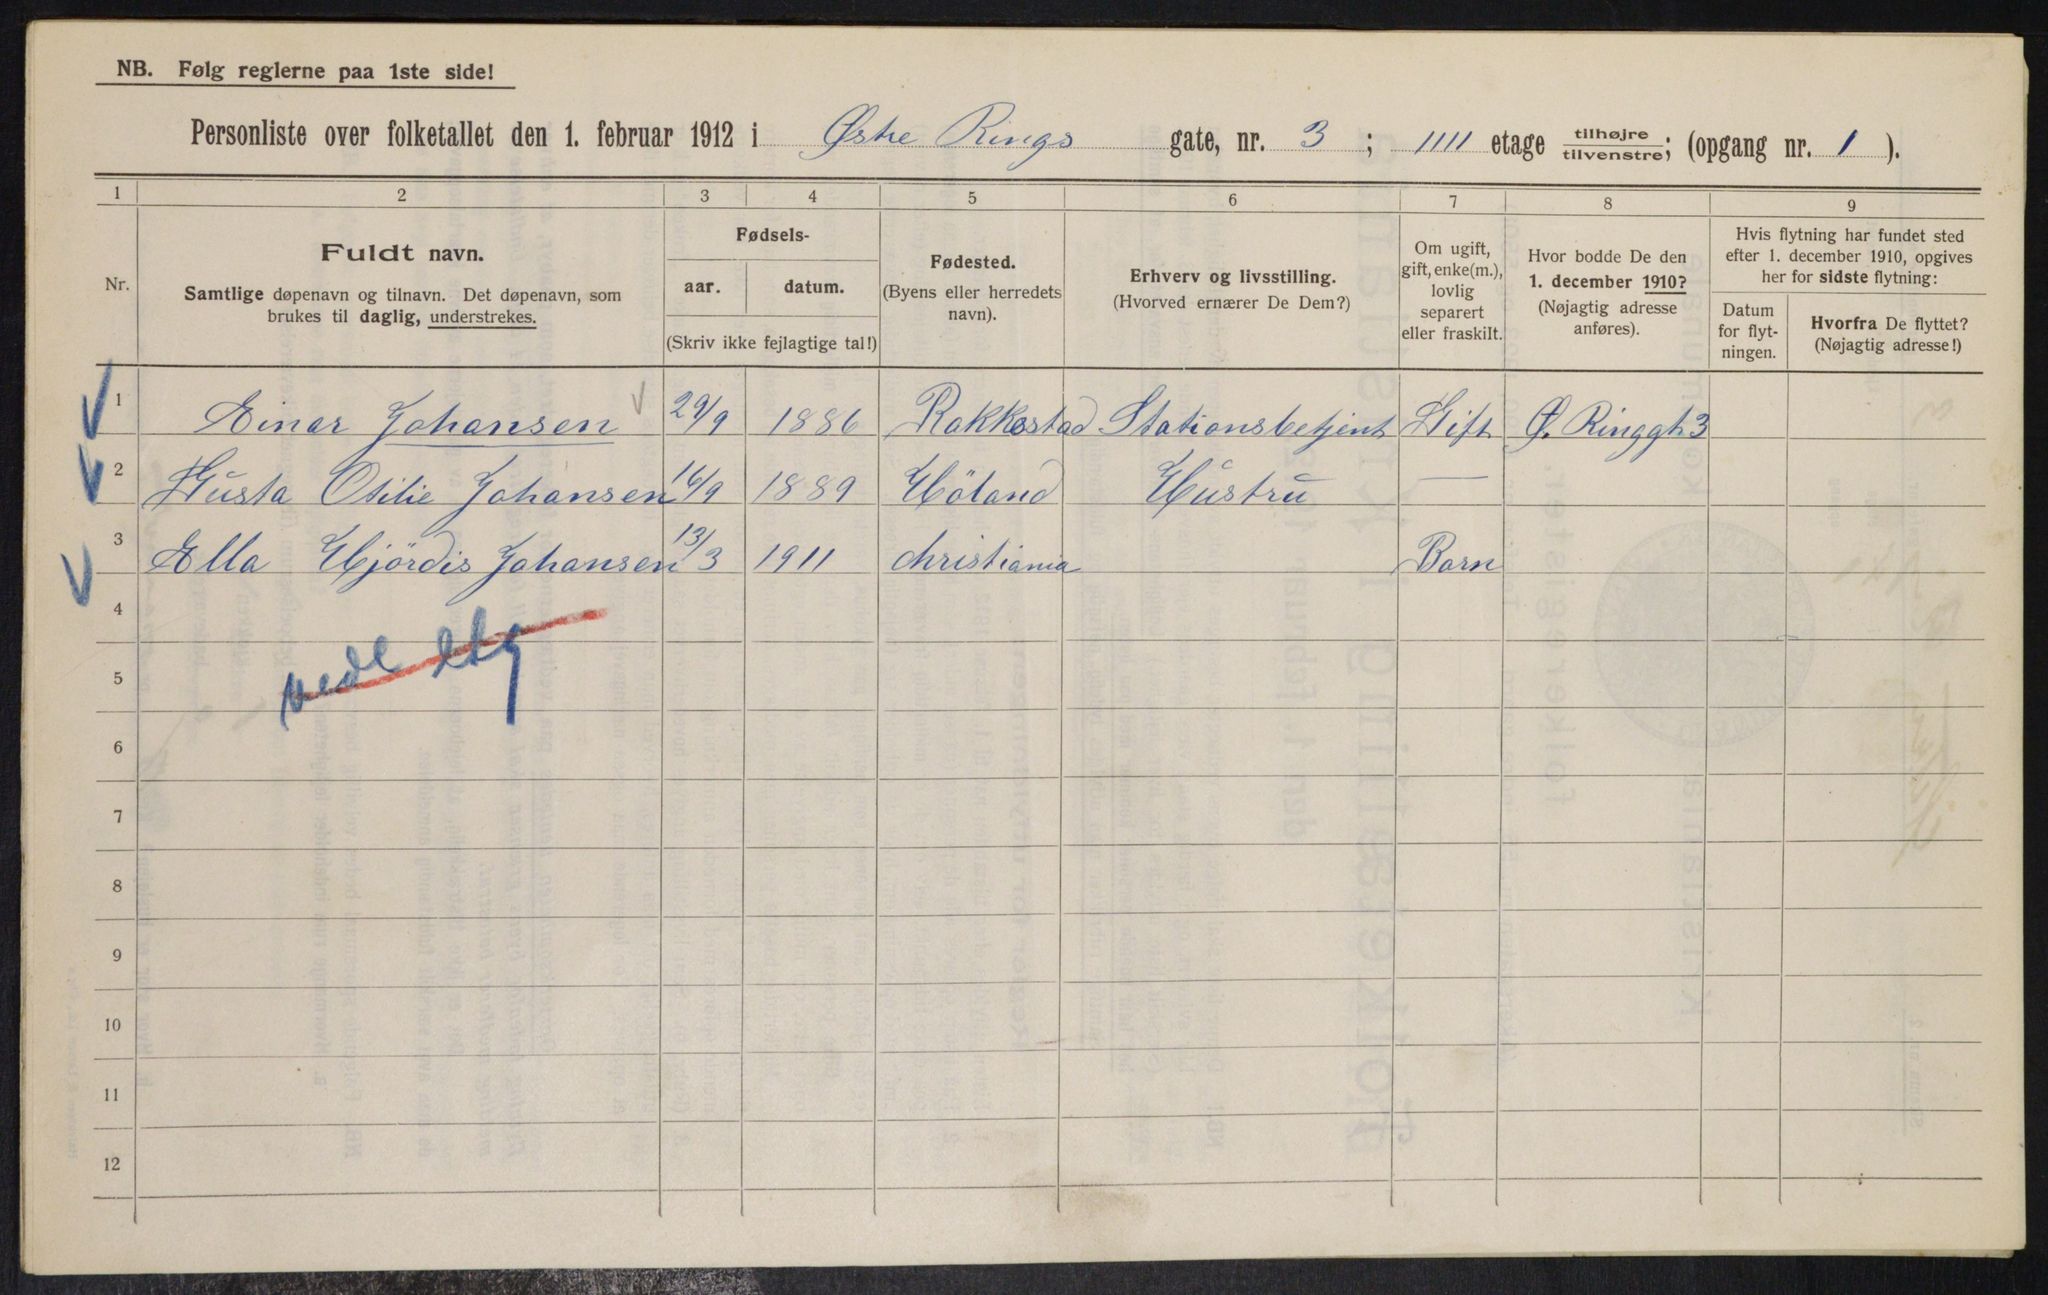 NB. Følg reglerne paa 1ste side!
Personliste over folketallet den 1. februar 1912 i Østre Rings gate, nr. 3 ; IIII etage tilhøjre/tilvenstre; (opgang nr. 1 ).
1 2 3 4 5 6 7 8 9
Nr.
Fuldt navn.
Samtlige døpenavn og tilnavn. Det døpenavn, som
brukes til daglig, understrekes.
Fødsels-
aar. datum.
(Skriv ikke fejlagtige tal!)
Fødested.
(Byens eller herredets
navn).
Erhverv og livsstilling.
(Hvorved ernærer De Dem?)
Om ugift,
gift, enke(m.),
lovlig
separert
eller fraskilt.
Hvor bodde De den
1. december 1910?
(Nøjagtig adresse
anføres).
Hvis flytning har fundet sted
efter 1. december 1910, opgives
her for sidste flytning:
Datum
for flyt-
ningen.
Hvorfra De flyttet?
(Nøjagtig adresse!)
1 Einar Johansen 29/9 1886 Rakkestad Stationsbetjent Gift Ø. Ringgt 3
2 Gusta Otilie Johansen 16/9 1889 Höland Hustru —
3 Ella Hjördis Johansen 13/3 1911 Christiania Barn
4
5
6
7
8
9
10
11
12